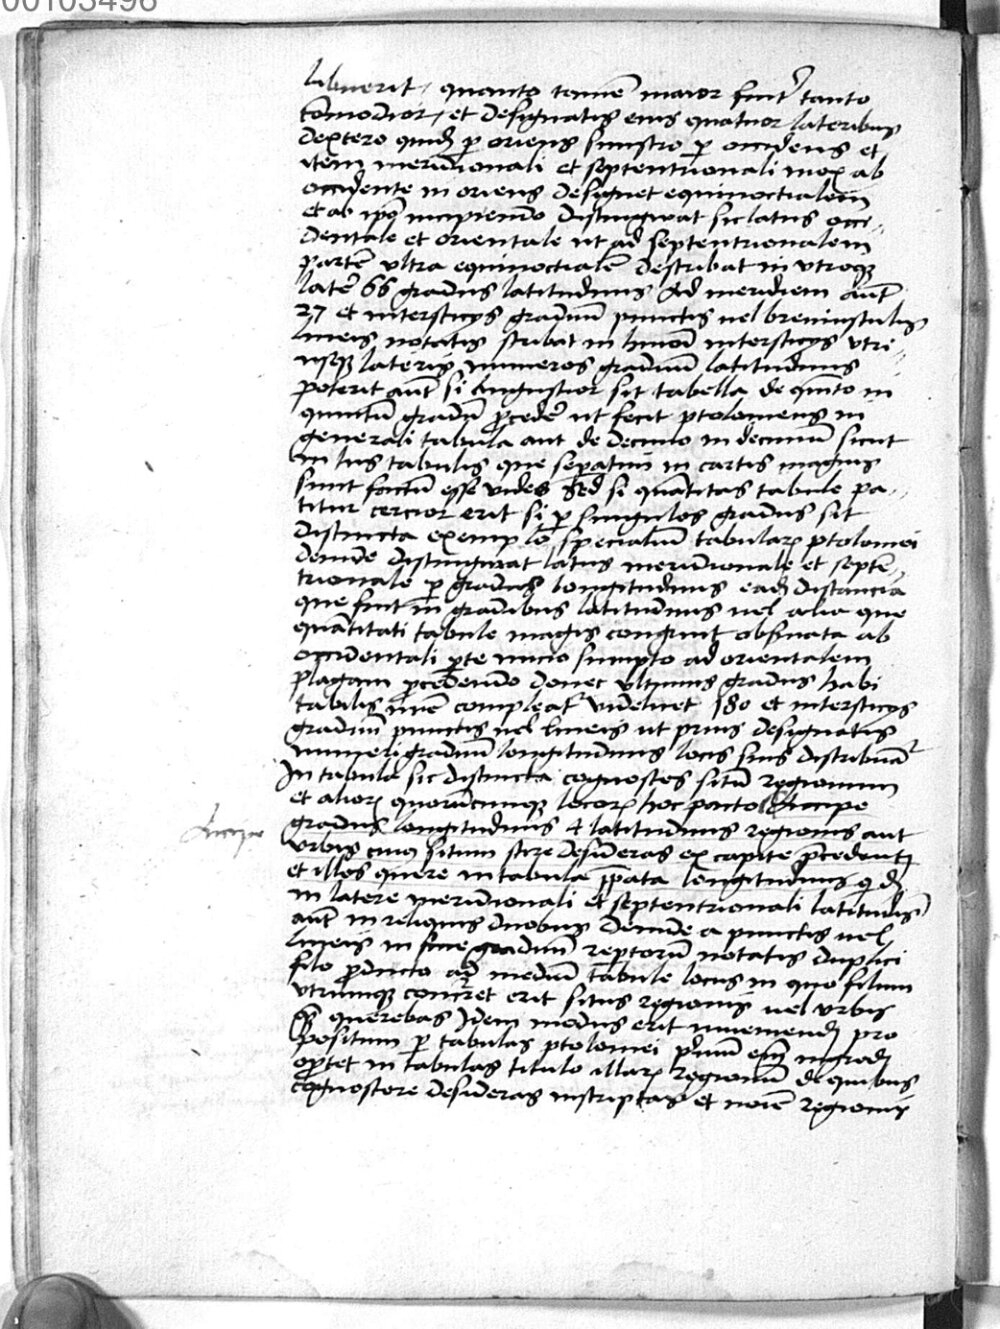 00103496
libuerit / quanto tamē maior fuit tanto
cōmodior / et designatis eius quatuor lateribus
dextero quidē p oriens sinistro p occidens et
item meridionali et septentrionali mox ab
occidente in oriens designet equinoctialem
et ab ipō incipiendo distinguat sic latus occi„
dentale et orientale ut ad septentrionalem
partē ultra equinoctialē describat in utroq
latē 66 gradus latitudinis Ad meridiem aūt
27 et intersticijs graduū punctis uel breuiusculis
lineis notatis scribat in huōi intersticijs utri„
usq lateris numeros graduū latitudinis
poterit aūt si angustior sit tabella de quīto in
quintū gradū pcedē ut fecit ptolomeus in
generali tabula aut de decimo in decimū sicut
in his tabulis que sepatim in cartis magnis
sunt factū esse vides Sed si quātitas tabule pa„
titur cercior erit si p singulos gradus sit
distincta exemplo specialiū tabular ptolomei
deinde distinguat latus meridionale et septē„
trionale p gradus longitudinis eadē distancia
que fuit in gradibus latitudinis uel alia que
quātitati tabule magis congruit obseruata ab
occidentali pte inicio sumpto ad orientalem
plagam pcedendo donec ultimus gradus habi
tabilis nrē compleat videlicet 180 et intersticijs
graduū punctis uel lineis ut prius designatis
numeri graduū longitudinis locis suis distribuāt
In tabula sic distincta cognosces sitū regionum
et alior quorūcumq locor hoc pacto Accipe
Accipe
gradus longitudinis & latitudinis regionis aut
vrbis cuius situm scire desideras ex capite pcedenti
et illos quere in tabula ppata longitudinis qdē
in latere meridionali et septentrionali latitudis
aūt in reliquis duobus Deinde a punctis uel
lineis in fine graduū reptorū notatis duplici
filo pducto ad mediū tabule locus in quo filum
utrumq concret erit situs regionis uel vrbis
quē querebas Idem modus erit inueniendi pro
positum p tabulas ptolomei primū em ingredi
oportet in tabulas titulo illar regionū de quibus
cognoscere desideras inscriptas et nomē regionis